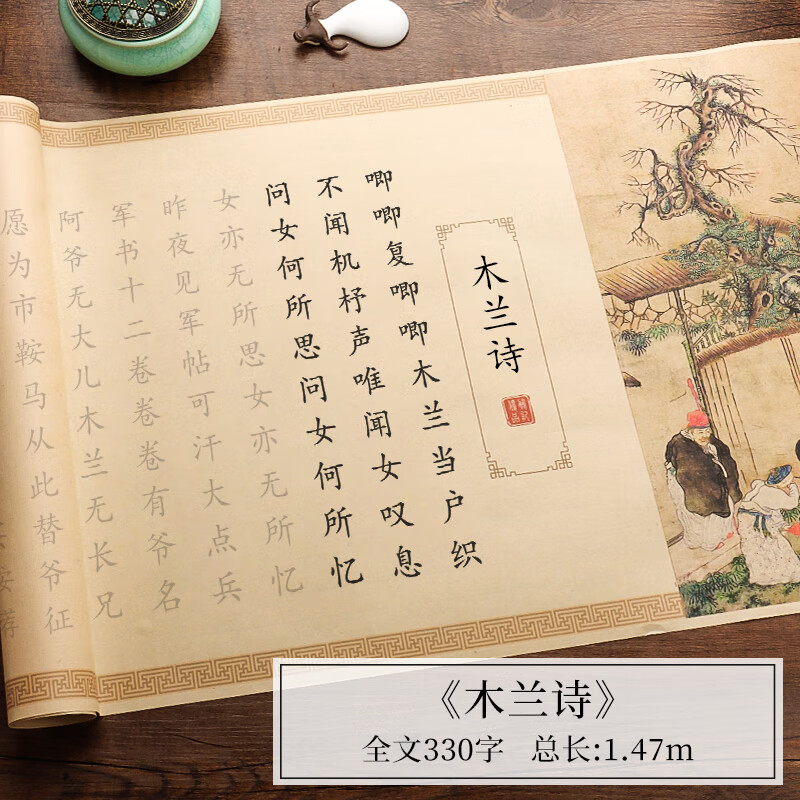 木兰诗
唧唧复唧唧木兰当户织
不闻机杼声唯闻女叹息
问女何所思问女何所忆
女亦无所思女亦无所忆
昨夜见军帖可汗大点兵
军书十二卷卷卷有爷名
阿爷无大儿木兰无长兄
愿为市鞍马从此替爷征
《木兰诗》
全文330字 总长:1.47m